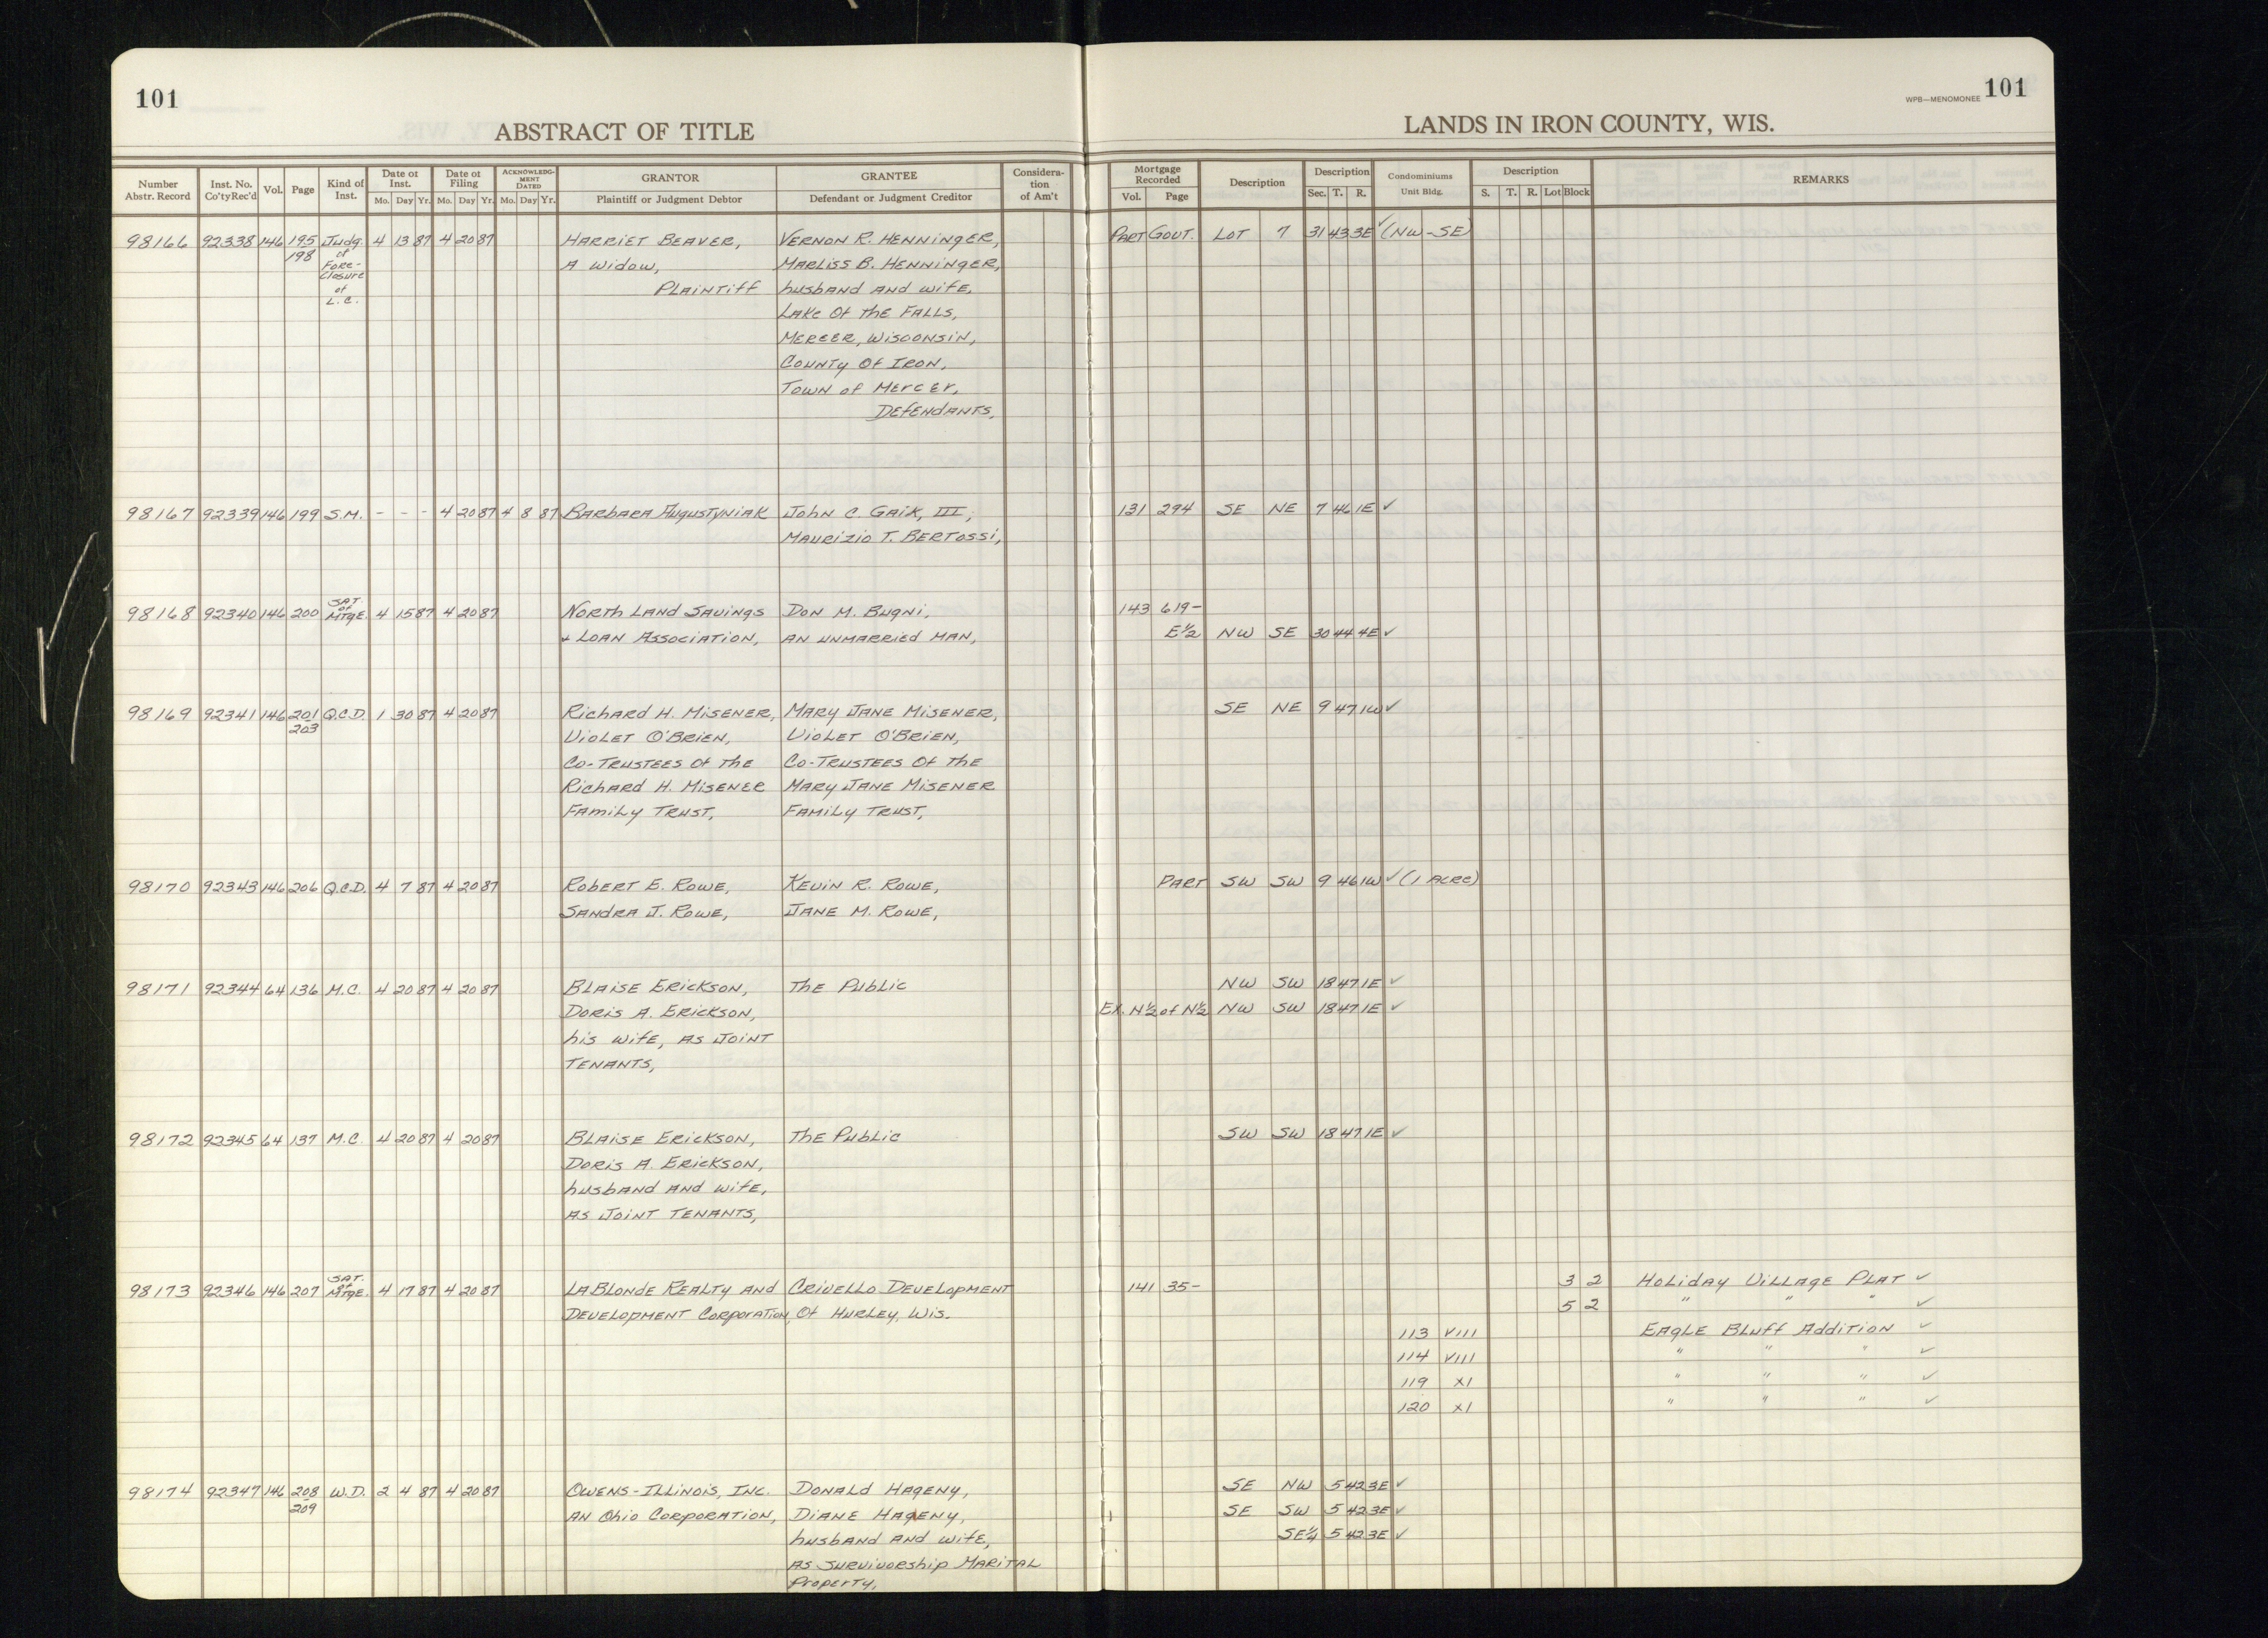 101
101
WPB—MENOMONEE
ABSTRACT OF TITLE
LANDS IN IRON COUNTY, WIS.
Number Abstr. Record | Inst. No. Co'ty Rec'd | Vol. | Page | Kind of Inst. | Date of Inst. Mo. Day Yr. | Date of Filing Mo. Day Yr. | ACKNOWLEDGMENT DATED Mo. Day Yr. | GRANTOR Plaintiff or Judgment Debtor | GRANTEE Defendant or Judgment Creditor | Consideration of Am't | Mortgage Recorded Vol. Page | Description | Description Sec. T. R. | Condominiums Unit Bldg. | Description S. T. R. Lot Block | REMARKS
98166 92338 146 195 Judg. 4 13 87 4 20 87 HARRIET BEAVER, VERNON R. HENNINGER, PART GOVT. LOT 7 31 43 3E ✓ (NW-SE)
198 of A Widow, MARLISS B. HENNINGER,
Fore- PLAINTIFF husband AND wife,
closure LAKE Of the FALLS,
of MERCER, WISCONSIN,
L.C. COUNTY Of IRON,
TOWN of MERCER,
DEFENDANTS,
98167 92339 146 199 S.M. - - - 4 20 87 4 8 87 BARBARA AUGUSTYNIAK John C. GAIK, III, 131 294 SE NE 7 46 1E ✓
MAURIZIO T. BERTOSSI,
98168 92340 146 200 SAT. of MTGE. 4 15 87 4 20 87 NORTH LAND SAVINGS DON M. BUGNI, 143 619-
& LOAN ASSOCIATION, AN UNMARRIED MAN, E½ NW SE 30 44 4E ✓
98169 92341 146 201 Q.C.D. 1 30 87 4 20 87 RICHARD H. MISENER, MARY JANE MISENER, SE NE 9 47 1W ✓
203 VIOLET O'BRIEN, VIOLET O'BRIEN,
CO-TRUSTEES Of the CO-TRUSTEES Of the
RICHARD H. MISENER MARY JANE MISENER
FAMILY TRUST, FAMILY TRUST,
98170 92343 146 206 Q.C.D. 4 7 87 4 20 87 ROBERT E. ROWE, KEVIN R. ROWE, PART SW SW 9 46 1W ✓ (1 ACRE)
SANDRA J. ROWE, JANE M. ROWE,
98171 92344 64 136 M.C. 4 20 87 4 20 87 BLAISE ERICKSON, The Public NW SW 18 47 1E ✓
DORIS A. ERICKSON, EX. N½ of N½ NW SW 18 47 1E ✓
his wife, AS JOINT
TENANTS,
98172 92345 64 137 M.C. 4 20 87 4 20 87 BLAISE ERICKSON, The Public SW SW 18 47 1E ✓
DORIS A. ERICKSON,
husband AND wife,
AS JOINT TENANTS,
98173 92346 146 207 SAT. of MTGE. 4 17 87 4 20 87 LABLONDE REALTY AND CRIVELLO DEVELOPMENT 141 35- 3 2 HOLIDAY VILLAGE PLAT ✓
DEVELOPMENT CORPORATION, Of HURLEY, WIS. 5 2 " " " ✓
113 VIII EAGLE BLUFF ADDITION ✓
114 VIII " " " ✓
119 XI " " " ✓
120 XI " " " ✓
98174 92347 146 208 W.D. 2 4 87 4 20 87 OWENS-ILLINOIS, INC. DONALD HAGENY, SE NW 5 42 3E ✓
209 AN Ohio CORPORATION, DIANE HAGENY, SE SW 5 42 3E ✓
husband AND wife, SE¼ 5 42 3E ✓
AS SURVIVORSHIP MARITAL
PROPERTY,